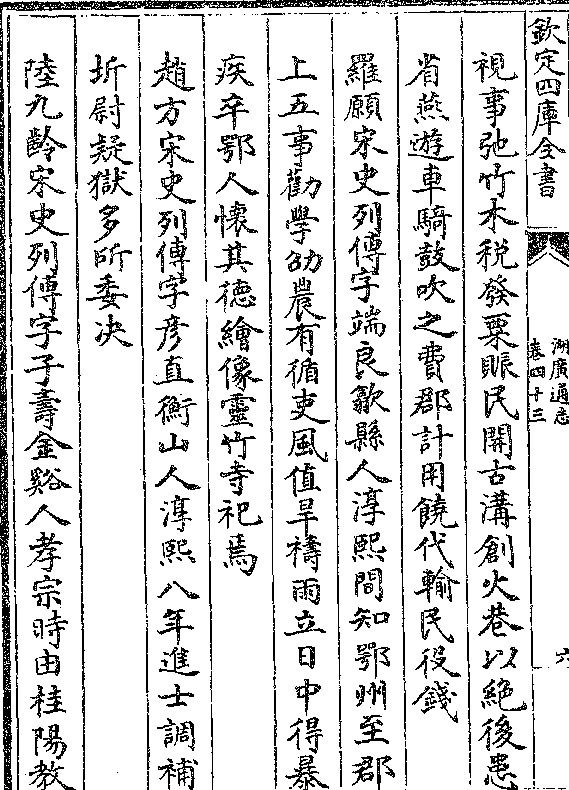 欽定四庫全書
湖廣通志
卷四十三
六
視事弛竹木税發粟賑民開古溝創火巷以絶後患
省燕遊車騎鼓吹之費郡計用饒代輸民役錢
羅願宋史列傳字端良歙縣人淳熙間知鄂州至郡
上五事勸學劭農有循吏風值旱禱雨立日中得暴
疾卒鄂人懷其德繪像靈竹寺祀焉
趙方宋史列傳字彦直衡山人淳熙八年進士調補
圻尉疑獄多所委决
陸九齡宋史列傳字子壽金谿人孝宗時由桂陽教